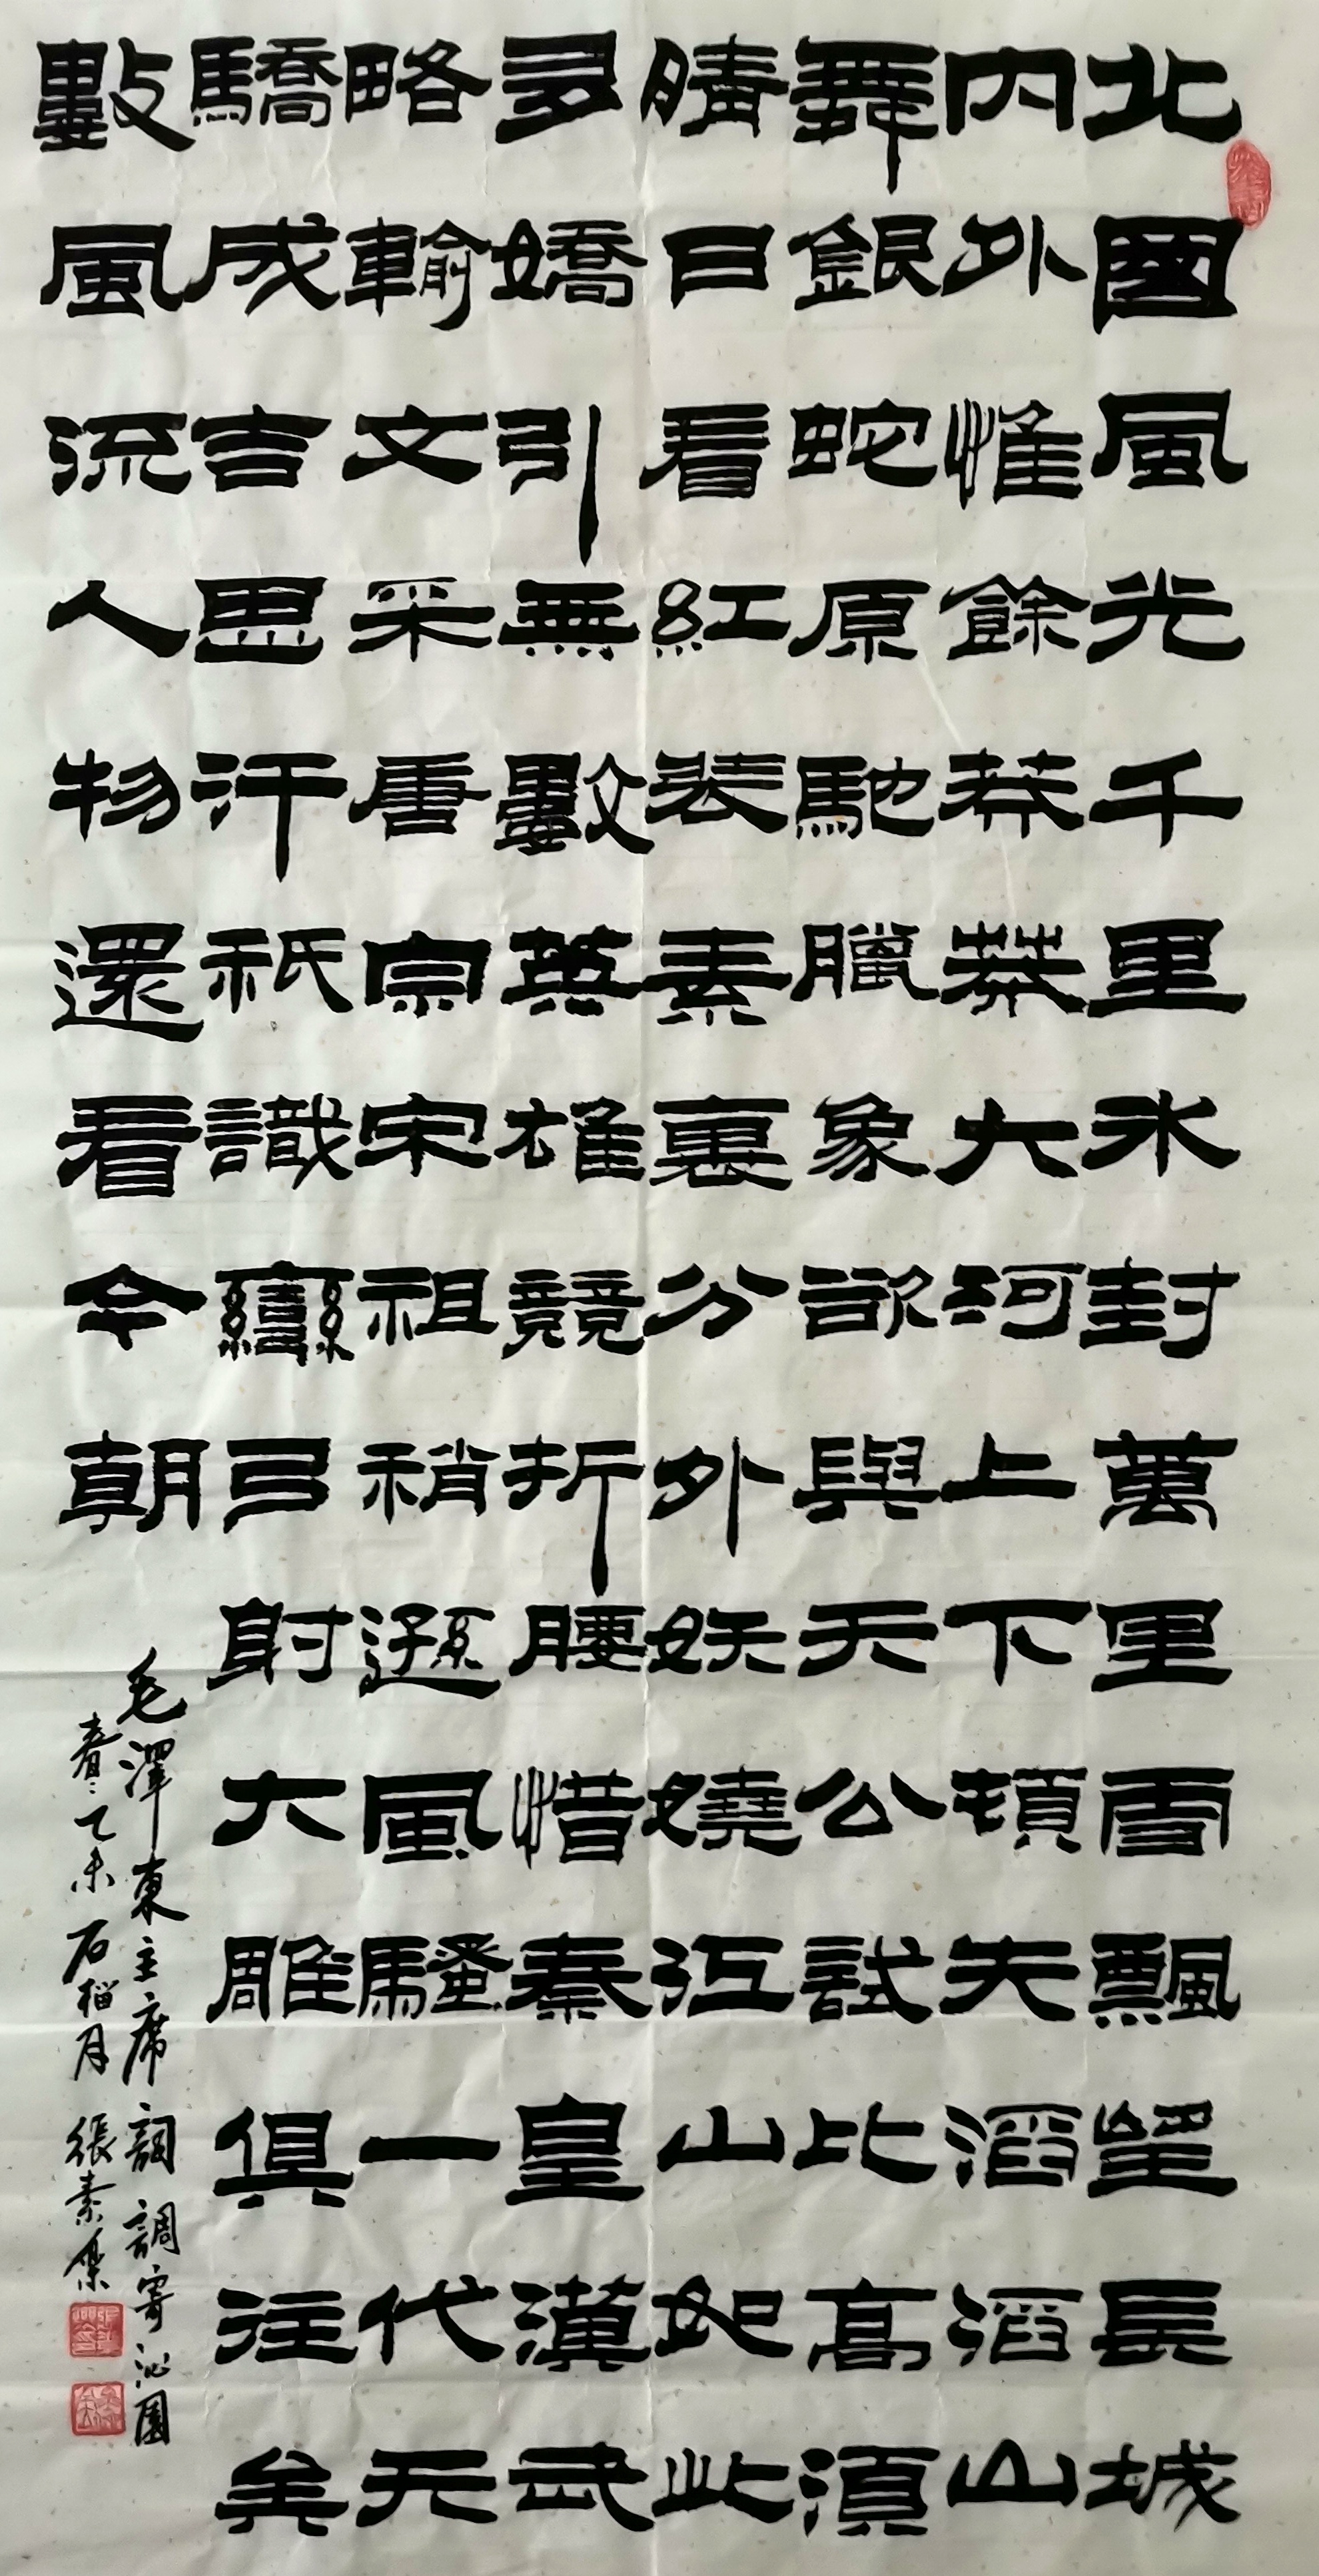 北國風光千里氷封萬里雪飄望長城
內外惟餘莽莽大河上下頓失滔滔山
舞銀蛇原馳臘象欲與天公試比高須
晴日看紅裝素裹分外妖嬈江山如此
多嬌引無數英雄競折腰惜秦皇漢武
略輸文采唐宗宋祖稍遜風騷一代天
驕成吉思汗祇識彎弓射大雕俱往矣
數風流人物還看今朝
毛澤東主席詞調寄沁園
春〻乙未石榴月張素集